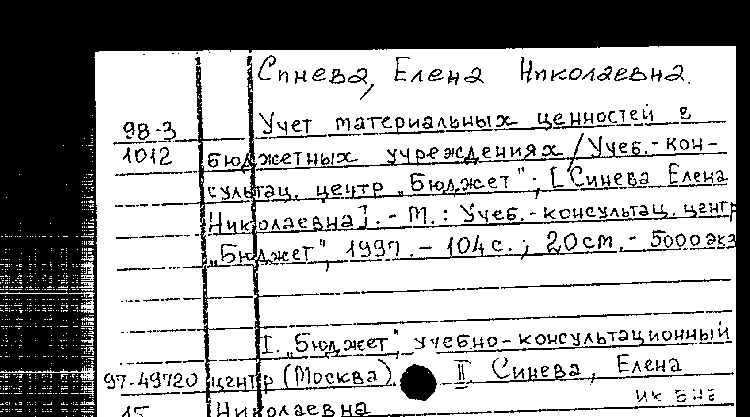 Синева, Елена Николаевна.
98-3 Учет материальных ценностей в
1012 бюджетных учреждениях / Учеб.-кон-
сультац. центр „Бюджет"; [Синева Елена
Николаевна]. - М.: Учеб.-консультац. центр
„Бюджет", 1997. - 104 с.; 20 см. - 5000 экз
I. „Бюджет", учебно-консультационный
97-49720 центр (Москва). II. Синева, Елена
15 Николаевна